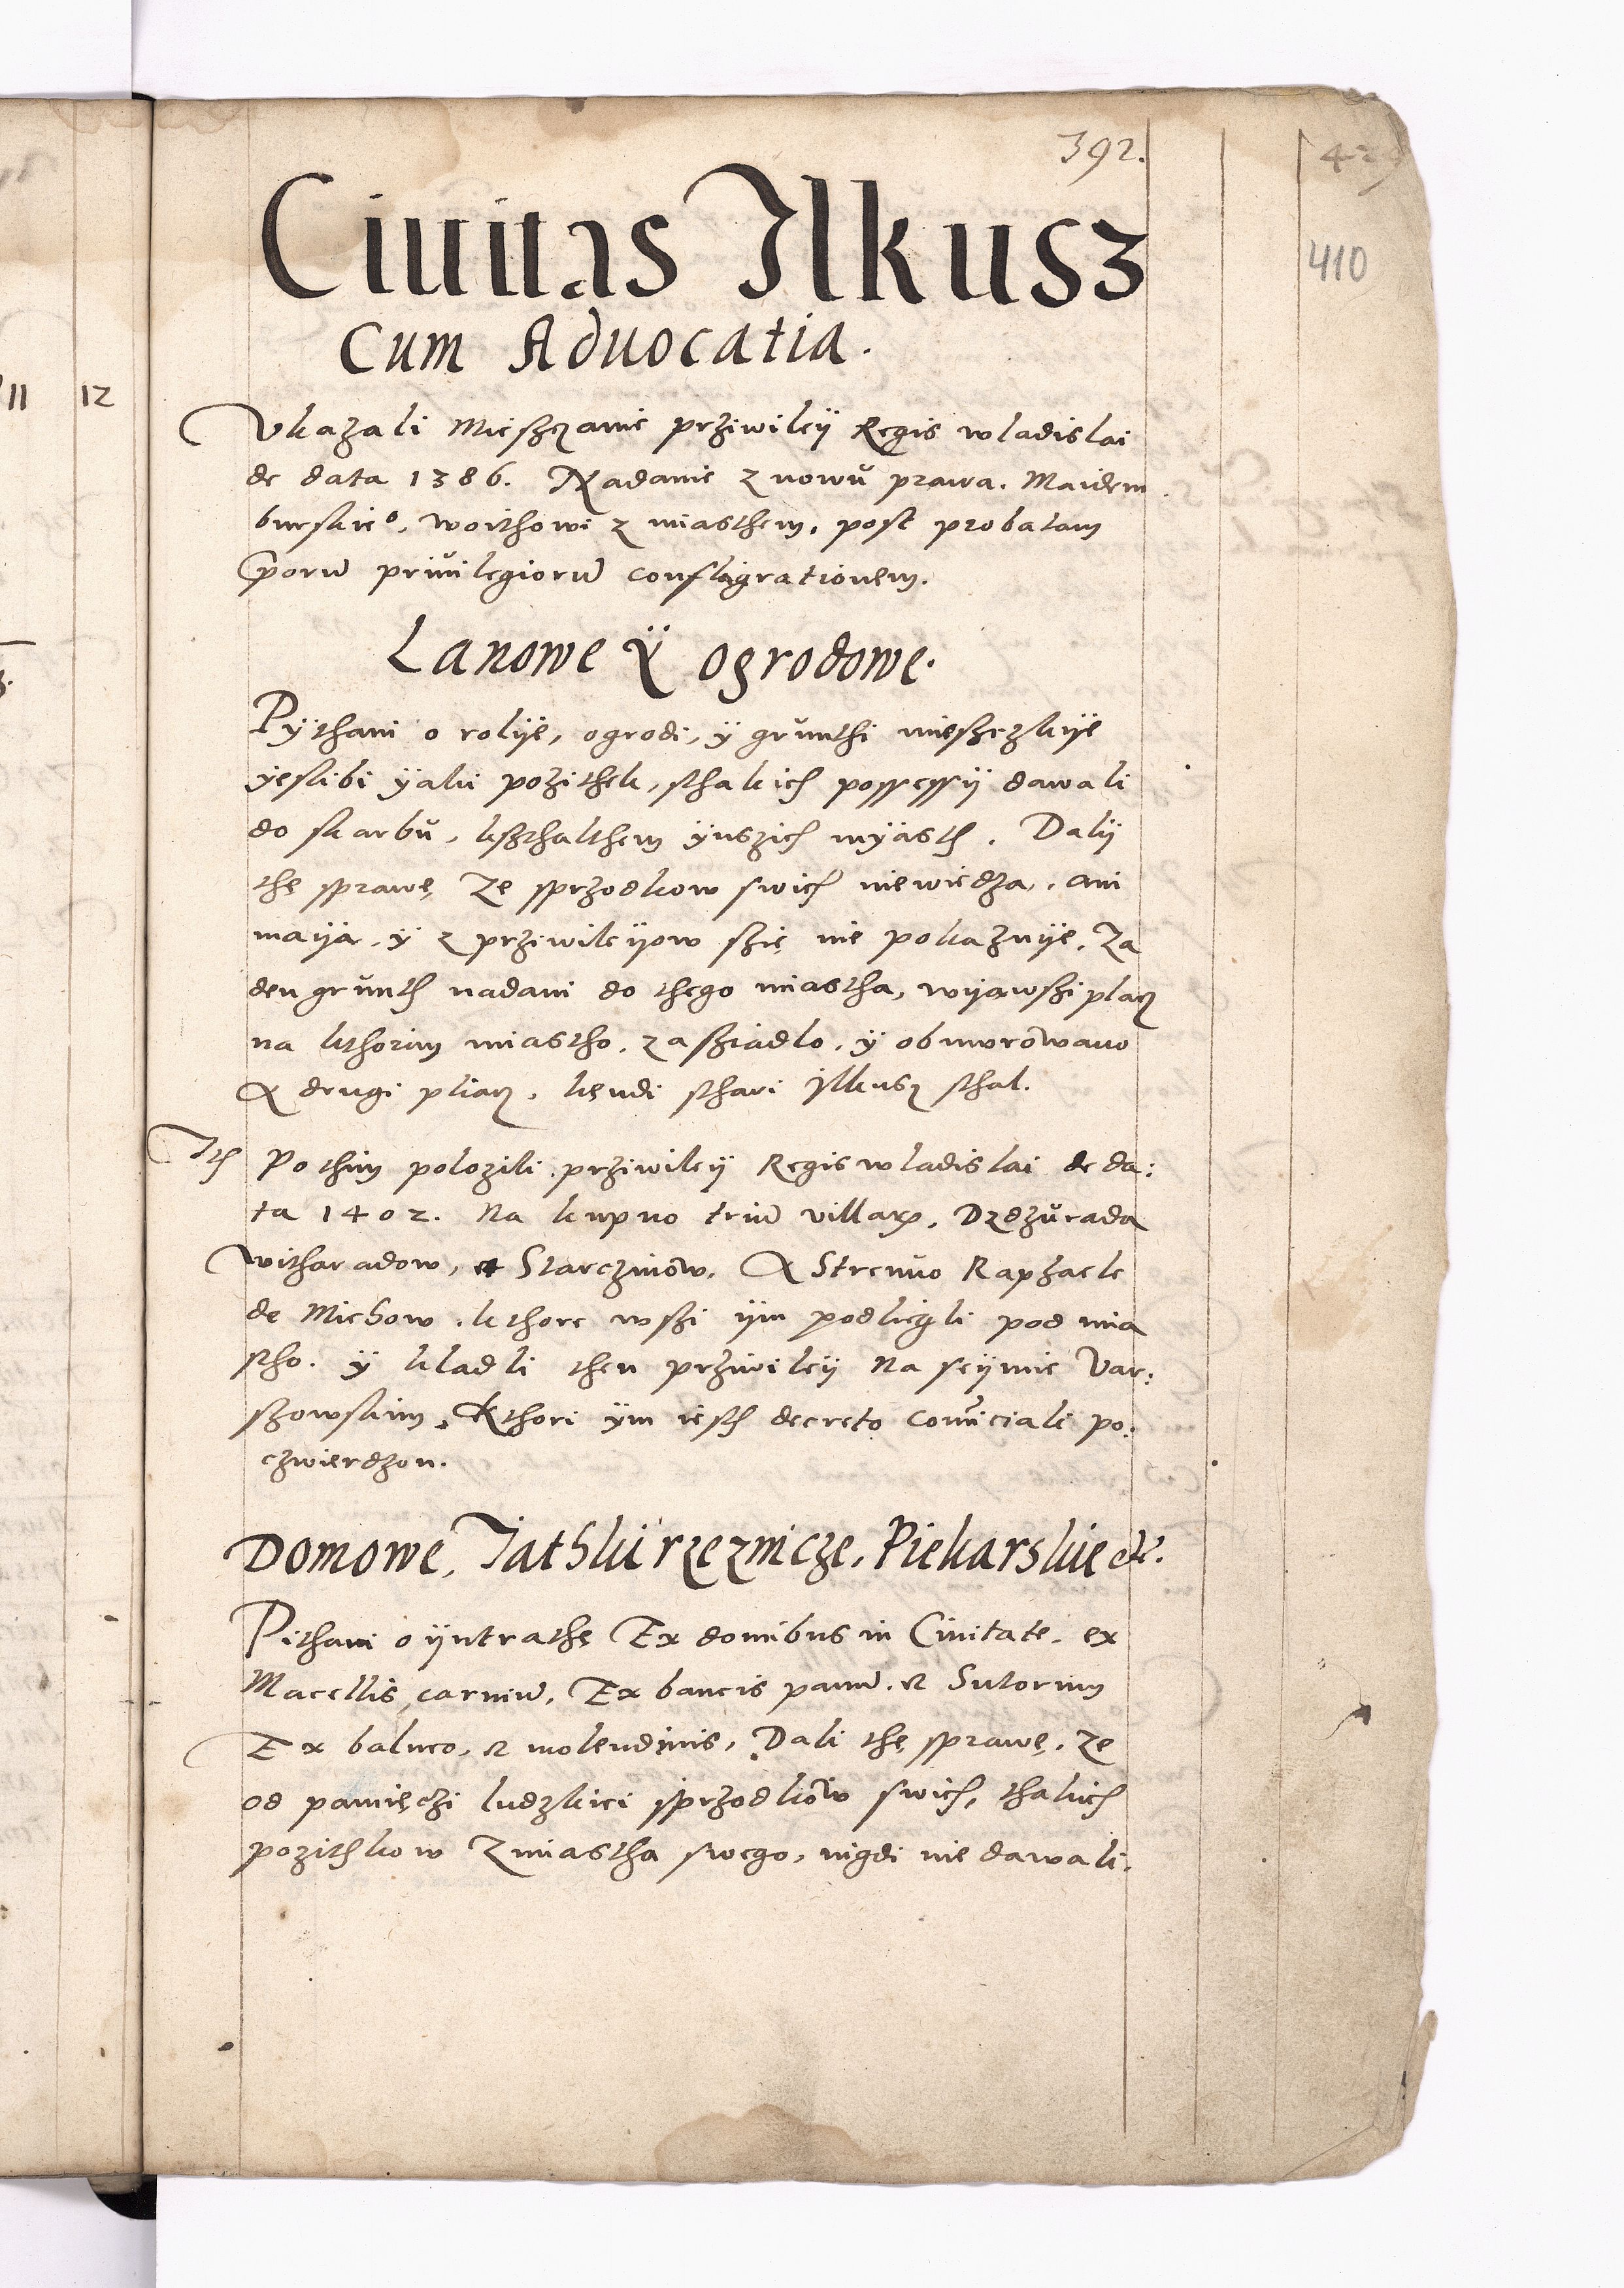 392.
429
410
11 12
Ciuitas Ilkusz
Cum Aduocatia.
Vkazali Mieszczanie prziwilÿ Regis wladislai
de data 1386. Nadanie z nowŭ prawa. Maidem
burskie°, woithowi z miasthem, post probatam
priorŭ priuilegiorŭ conflagrationem.
Lanowe Ÿ ogrodowe.
Pÿthani o rolÿe, ogrodi, ÿ grŭnthi miesczkÿe
ÿeslibi ÿaki pozithek, sthakich possessÿ dawali
do skarbŭ, ksztalthem ÿnszich mÿasth. Dalÿ
thę sprawę Ze sprzodkow swich niewiedza, ani
maÿa, ÿ z prziwileÿow szię nie pokazuÿe, Za
den grŭnth nadani do thego miastha, wÿąwszi placz
na kthorim miastho, zasziadlo, ÿ obmurowano
& drugi pliacz, kęndi sthari Ilkusz sthal.
Ith Pothim polozili prziwileÿ Regis wladislai de da:
ta 1402. Na kupno triŭ villarꝝ, Dzdzŭrada
witharadow, et Starczinow, A Strenuo Raphaele
de Michow, kthore wszi ÿm podlięgli pod mia
stho. ÿ kladli then prziwileÿ Na seÿmie Var:
szowskim, Kthori ÿm iesth decreto conuiciali po:
czwierdzon.
Domowe, Jathki rzeznicze, Piekarskie etc.
Pithani o ÿntrathę Ex domibus in Ciuitate, ex
Macellis carniŭ, Ex bancis panŭ, et Sutorum
Ex balneo, et molendinis, Dali thę sprawę, Ze
od pamięczi ludzkiei sprzodków swich, thakich
pozithkow Z miastha swego, nigdi nie dawali.